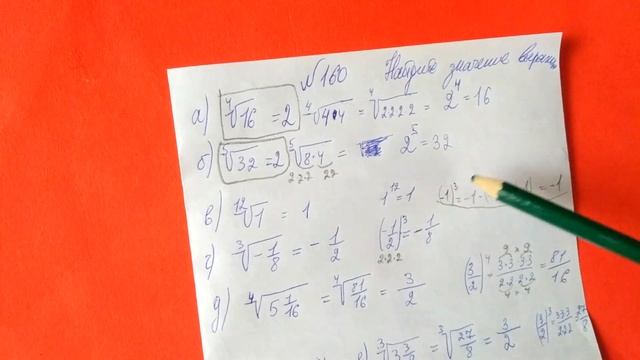 №160 Найдите значение выраж
а) ⁴√16 = 2 ⁴√4·4 = ⁴√2222 = 2⁴ = 16
б) ⁵√32 = 2 ⁵√8·4 = 2⁵ = 32
2·2·2 22
в) ¹²√1 = 1 1¹² = 1 (-1)³ = -1· = -1
г) ³√-1/8 = -1/2 (-1/2)³ = -1/8
2·2·2
д) ⁴√5 1/16 = ⁴√81/16 = 3/2 (3/2)⁴ = 3·3·3·3/2·2·2·2 = 81/16
9 × 9
4 × 4
е) ³√3 3/8 = ³√27/8 = 3/2 (3/2)³ = 333/222 = 27/8